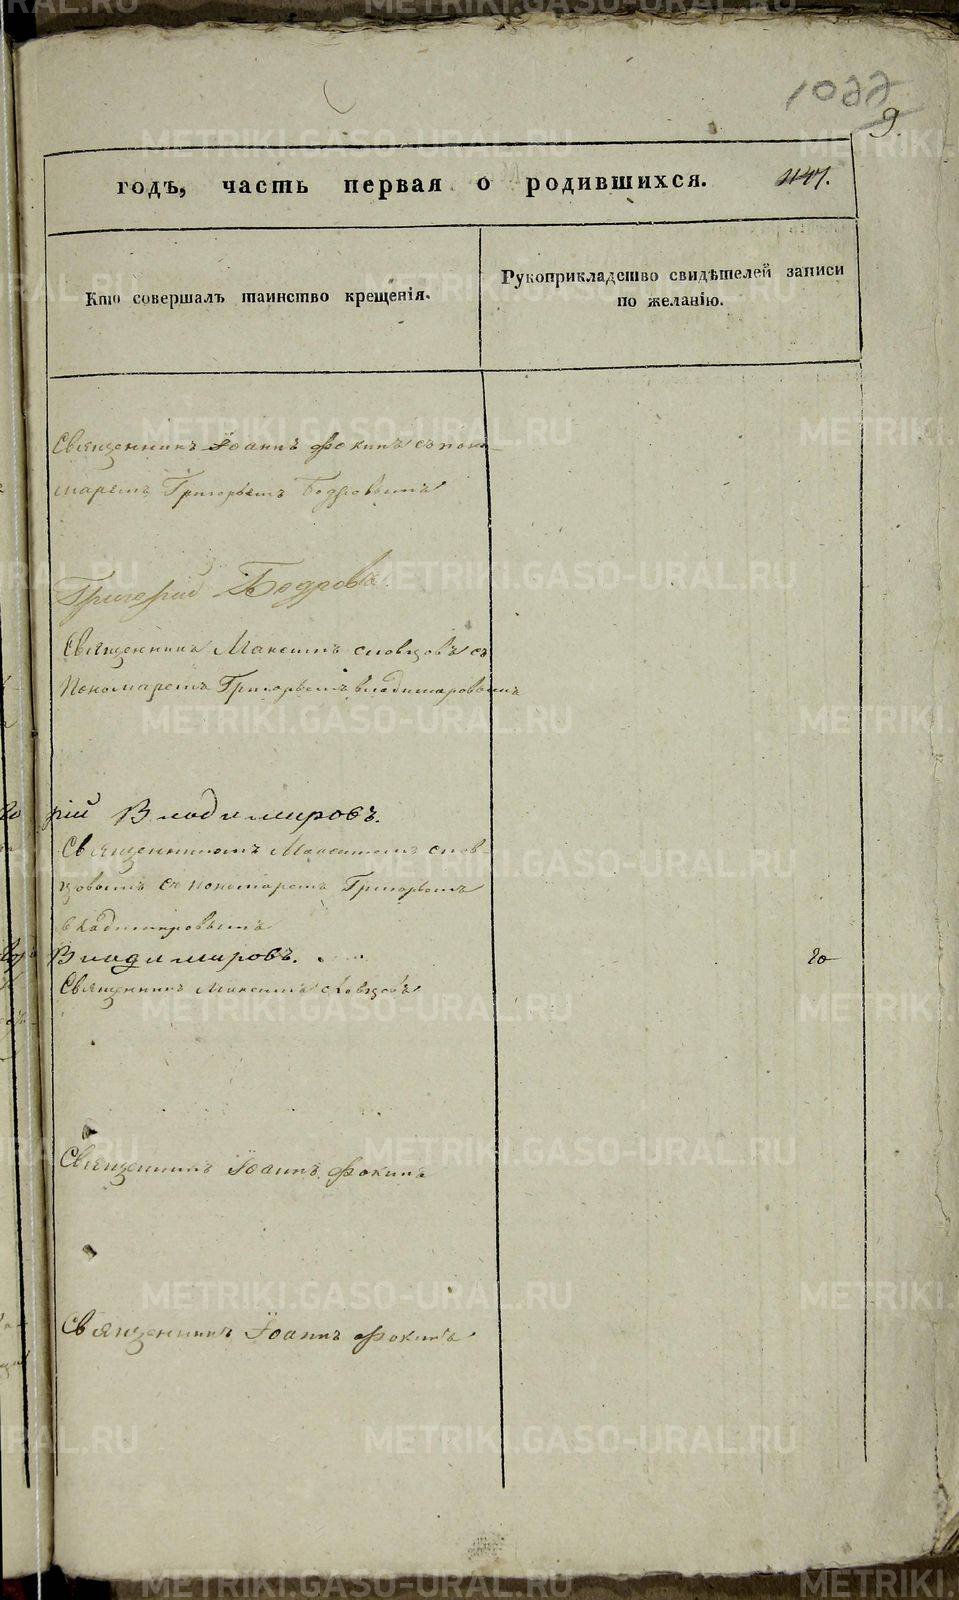 1022
9.
годъ, часть первая о родившихся. 1147.
Кто совершалъ таинство крещенія.
Рукоприкладство свидѣтелей записи
по желанію.
Священникъ Іоаннъ Фокинъ съ поно-
маремъ Григорьемъ Бодровымъ
Григорій Бодровъ
Священникъ Максимъ Словцовъ съ
Пономаремъ Григорьемъ Владимировымъ
рій Владимировъ.
Священникомъ Максимомъ Слов
цовымъ съ пономаремъ Григорьемъ
Владимировымъ
Владимировъ.
Священникъ Максимъ Словцовъ
Священникъ Іоаннъ Фокинъ
Священникъ Іоаннъ Фокинъ
METRIKI.GASO-URAL.RU